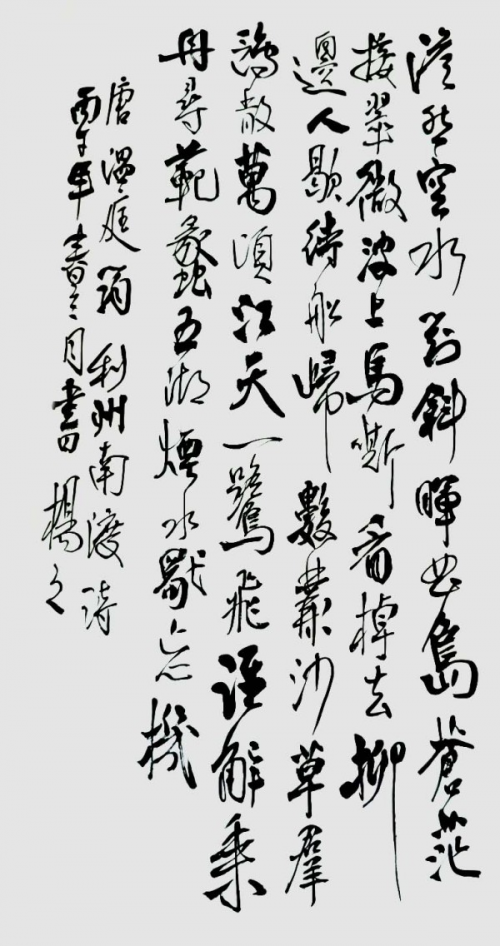 澹然空水對斜暉曲島蒼茫
接翠微波上馬嘶看棹去柳
邊人歇待船歸數叢沙草羣
鷗散萬頃江天一鷺飛誰解乘
舟尋範蠡五湖煙水獨忘機
唐溫庭筠利州南渡詩
丙午年春三月書 楊